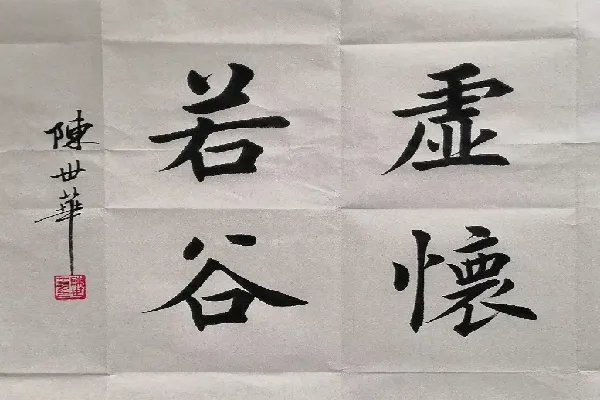 虛懷
若谷
陳世華